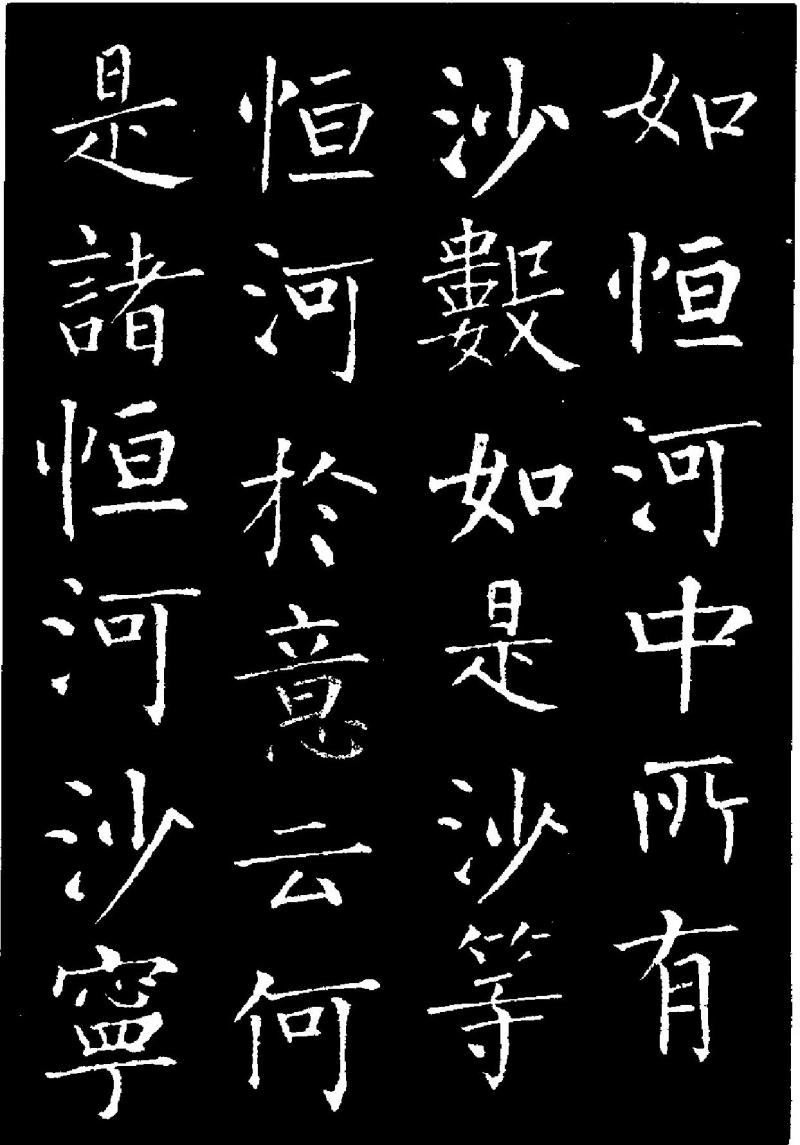 如恒河中所有
沙數如是沙等
恒河於意云何
是諸恒河沙寧